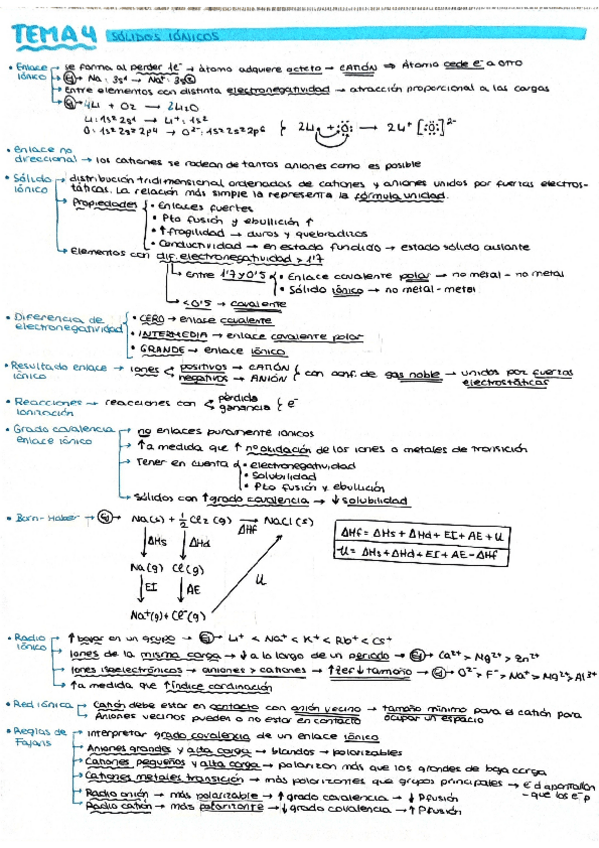 TEMA 4 SÓLIDOS IÓNICOS
• Enlace iónico → se forma al perder 1e⁻ → átomo adquiere octeto → CATIÓN ⇒ Átomo cede e⁻ a otro
→ Ej → Na: 3s¹ → Na⁺: 3s⁰
→ Entre elementos con distinta electronegatividad → atracción proporcional a las cargas
→ Ej → 4Li + O₂ → 2Li₂O
Li: 1s² 2s¹ → Li⁺: 1s²
O: 1s² 2s² 2p⁴ → O²⁻: 1s² 2s² 2p⁶ } 2Li + :Ö: → 2Li⁺ [:Ö:]²⁻
• Enlace no direccional → los cationes se rodean de tantos aniones como es posible
• Sólido iónico → distribución tridimensional ordenadas de cationes y aniones unidos por fuerzas electros-
táticas. La relación más simple la representa la fórmula unidad.
→ Propiedades { • Enlaces fuertes
• Pto fusión y ebullición ↑
• ↑ fragilidad → duros y quebradizos
• Conductividad → en estado fundido → estado sólido aislante
→ Elementos con dif. electronegatividad > 1'7
→ Entre 1'7 y 0'5 { • Enlace covalente polar → no metal - no metal
• Sólido iónico → no metal - metal
→ < 0'5 → covalente
• Diferencia de electronegatividad { • CERO → enlace covalente
• INTERMEDIA → enlace covalente polar
• GRANDE → enlace iónico
• Resultado enlace iónico → iones < positivos → CATIÓN
negativos → ANIÓN } con conf. de gas noble → unidos por fuerzas electrostáticas
• Reacciones ionización → reacciones con < pérdida
ganancia } e⁻
• Grado covalencia enlace iónico → no enlaces puramente iónicos
→ ↑ a medida que ↑ nº oxidación de los iones o metales de transición
→ Tener en cuenta { • electronegatividad
• Solubilidad
• Pto fusión y ebullición
→ Sólidos con ↑ grado covalencia → ↓ solubilidad
• Born-Haber → Ej → Na(s) + ½ Cl₂(g) → NaCl(s)
ΔHf
ΔHs ΔHd
Na(g) Cl(g)
EI AE
U
Na⁺(g) + Cl⁻(g)
ΔHf = ΔHs + ΔHd + EI + AE + U
-U = ΔHs + ΔHd + EI + AE - ΔHf
• Radio iónico → ↑ bajar en un grupo → Ej → Li⁺ < Na⁺ < K⁺ < Rb⁺ < Cs⁺
→ Iones de la misma carga → ↓ a lo largo de un periodo → Ej → Ca²⁺ > Mg²⁺ > Zn²⁺
→ Iones isoelectrónicos → aniones > cationes → ↑ Zef ↓ tamaño → Ej → O²⁻ > F⁻ > Na⁺ > Mg²⁺ > Al³⁺
→ ↑ a medida que ↑ índice coordinación
• Red iónica → Catión debe estar en contacto con anión vecino → tamaño mínimo para el catión para ocupar un espacio
→ Aniones vecinos pueden o no estar en contacto
• Reglas de Fajans → interpretar grado covalencia de un enlace iónico
→ Aniones grandes y alta carga → blandos → polarizables
→ Cationes pequeños y alta carga → polarizan más que los grandes de baja carga
→ Cationes metales transición → más polarizantes que grupos principales → e⁻d apantallan - que los e⁻p
→ Radio anión → más polarizable → ↑ grado covalencia → ↓ Pfusión
→ Radio catión → más polarizante → ↓ grado covalencia → ↑ Pfusión